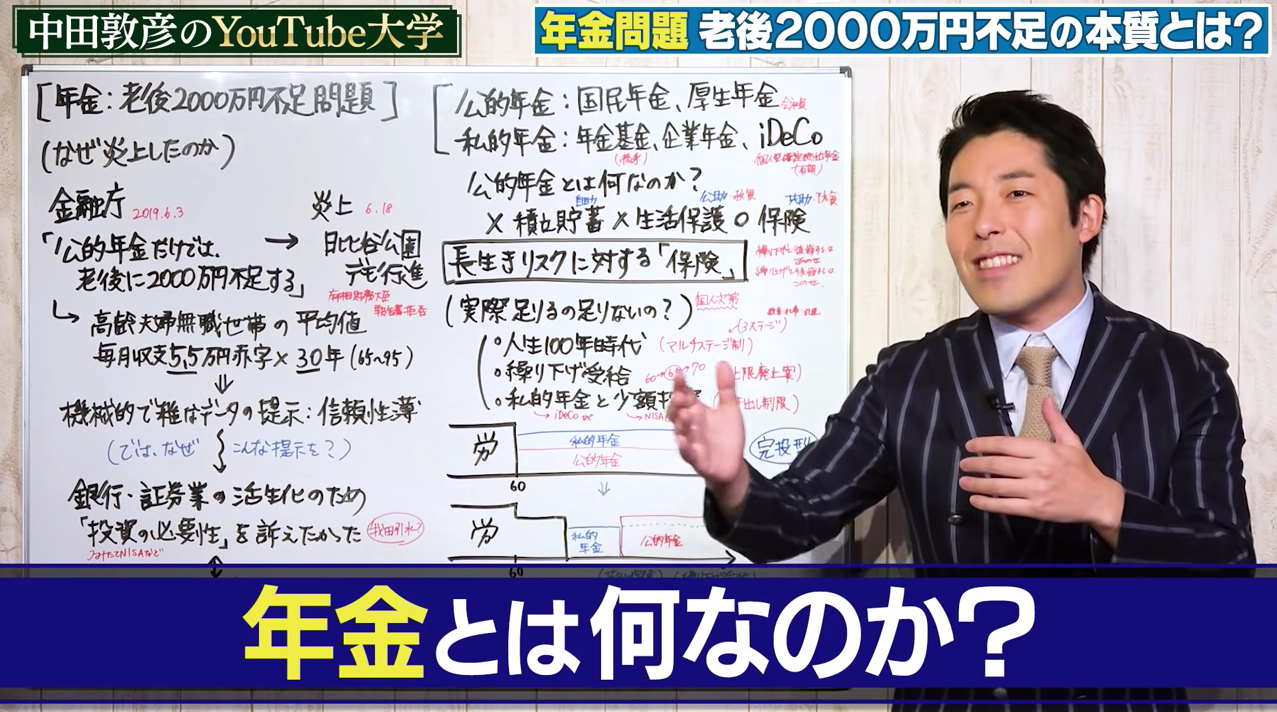 中田敦彦のYouTube大学
年金問題 老後2000万円不足の本質とは?
[年金:老後2000万円不足問題]
(なぜ炎上したのか)
金融庁 2019.6.3 炎上 6.18
「公的年金だけでは、 → 日比谷公園
老後に2000万円不足する」 デモ行進
麻生財務大臣
報告書拒否
↳ 高齢夫婦無職世帯の平均値
毎月収支5.5万円赤字×30年(65~95)
⇓
機械的で雑なデータの提示:信頼性薄
(では、なぜ こんな提示を?)
銀行・証券業の活性化のため
「投資の必要性」を訴えたかった 我田引水?
つみたてNISAなど
公的年金:国民年金、厚生年金 会社員
私的年金:年金基金、企業年金、iDeCo
個人型確定拠出年金
公的年金とは何なのか?
自助 公助 共助
×積立貯蓄×生活保護○保険
長生きリスクに対する「保険」
(実際足りるの足りないの?) 個人次第
(3ステージ)
○人生100年時代 (マルチステージ制)
○繰り下げ受給 60 70 上限廃止案)
○私的年金と少額投 出し制限)
→iDeCo →NISA
労 私的年金 完投型
公的年金
60
⇓
労 私的年金 公的年金
60
年金とは何なのか?